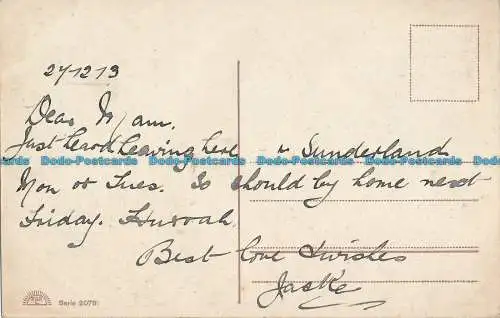 27/12/13
Dear Mam.
Just heard leaving here & Sunderland
Mon or Tues. So should by home next
Friday. Hurrah.
Best love & wishes
Jacke
Serie 2079
Dodo-Postcards Dodo-Postcards Dodo-Postcards Dodo-Postcards Dodo-Postcards